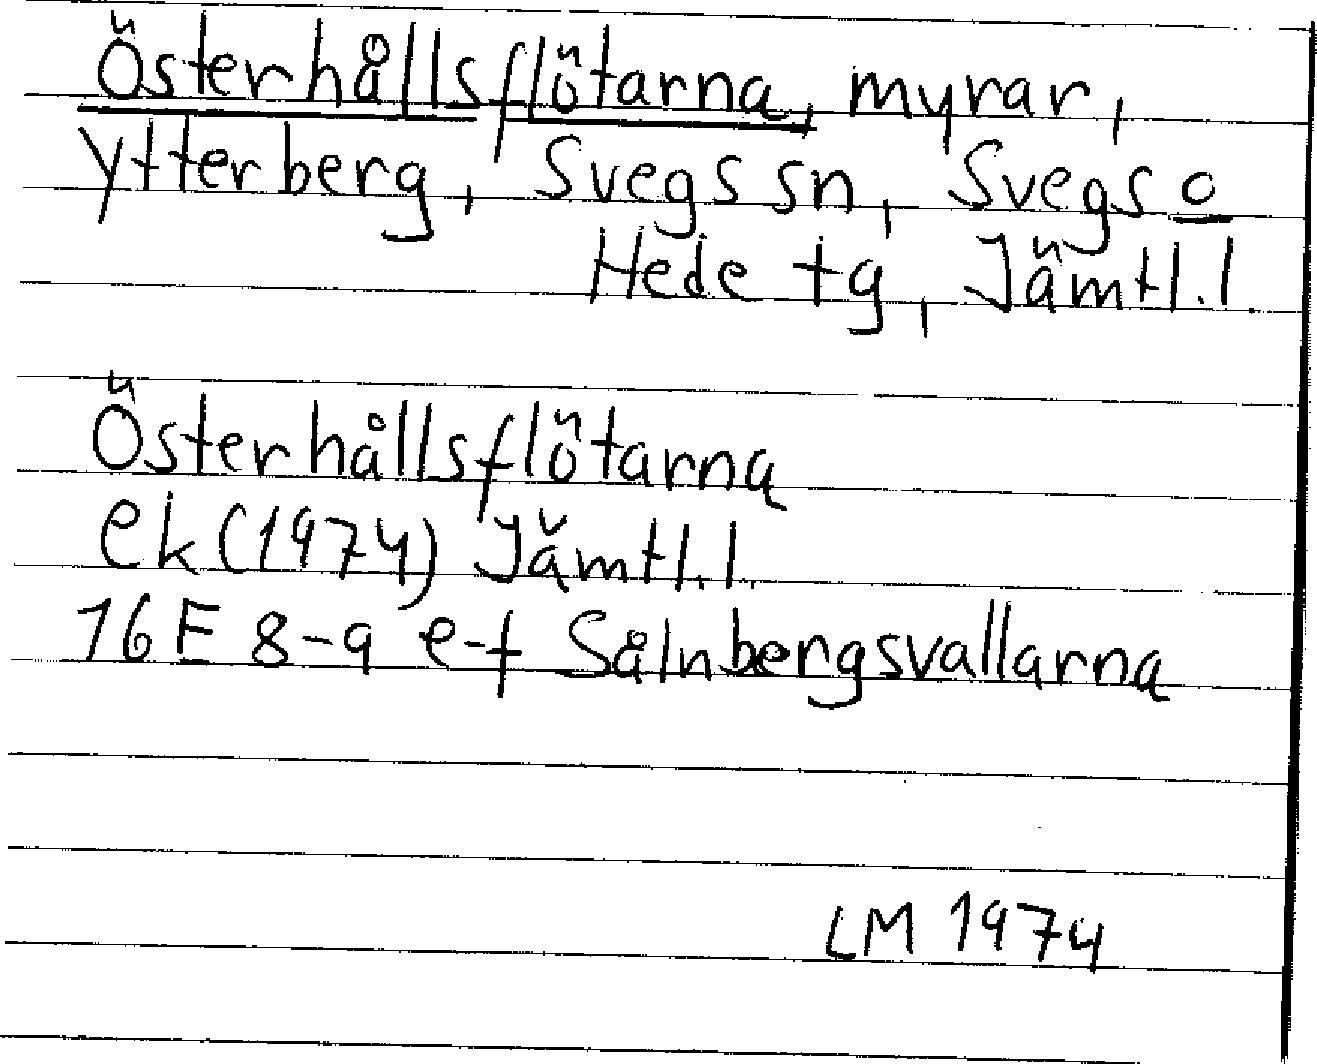 Österhållsflötarna, myrar,
Ytterberg, Svegs sn, Svegs o
Hede tg, Jämtl. l
Österhållsflötarna
ek (1974) Jämtl. l.
16 F 8-9 e-f Sålnbergsvallarna
LM 1974